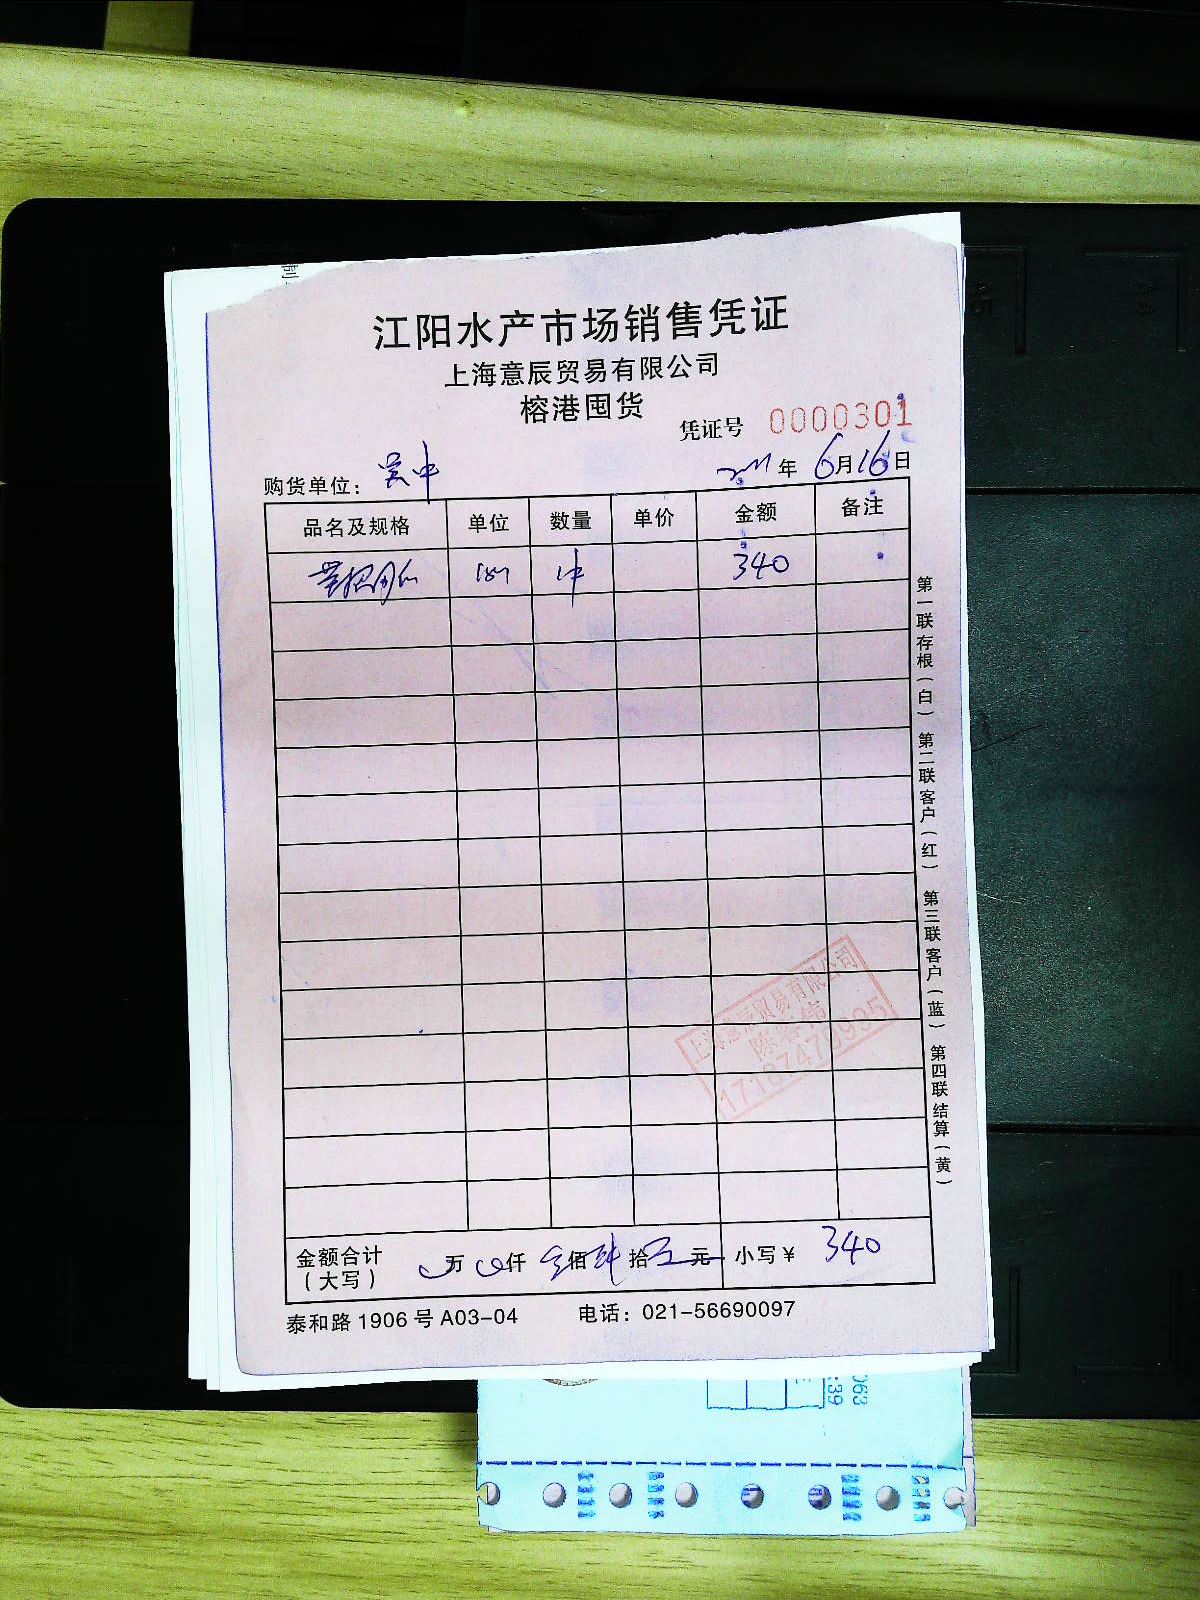 江阳水产市场销售凭证
上海意辰贸易有限公司
榕港囤货
凭证号 0000301
购货单位: 吴中 年 6月16日
品名及规格 单位 数量 单价 金额 备注
340
上海意辰贸易有限公司
金额合计 万 仟 佰 拾 元 小写¥ 340
(大写)
泰和路1906号A03-04 电话: 021-56690097
第一联存根(白) 第二联客户(红) 第三联客户(蓝) 第四联结算(黄)
063
:39